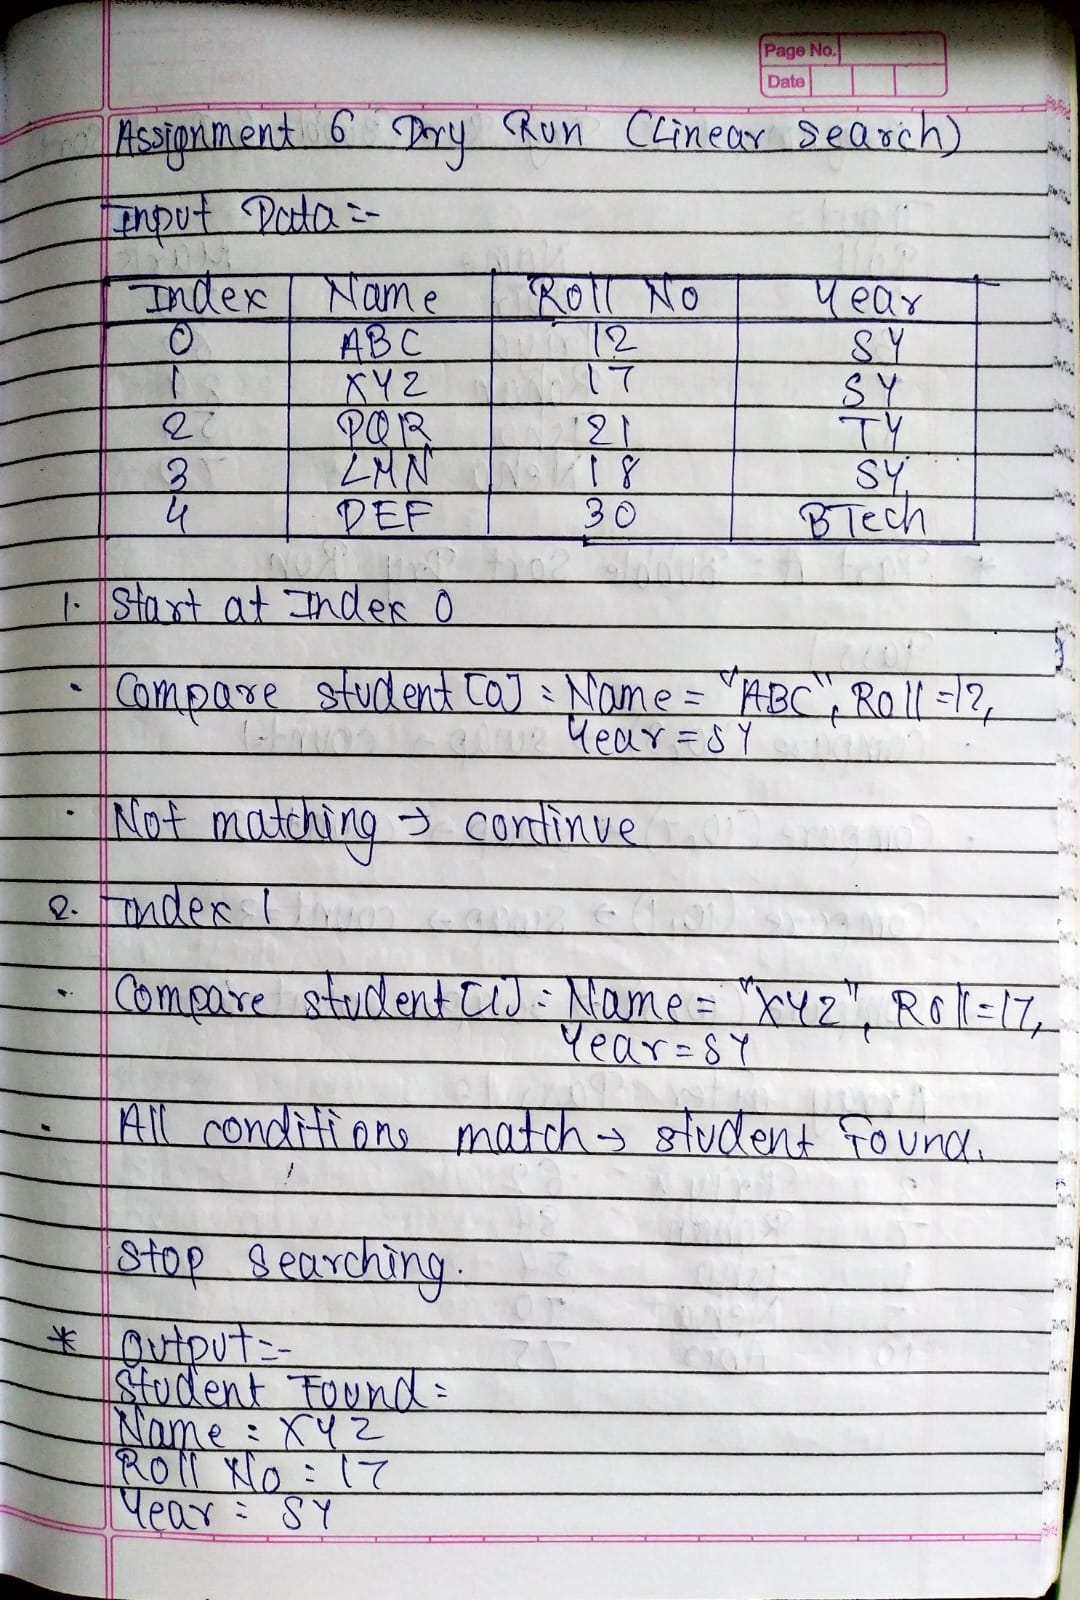 Page No.
Date
Assignment 6 Dry Run (Linear Search)
Input Data :-
Index Name Roll No Year
0 ABC 12 SY
1 XYZ 17 SY
2 PQR 21 TY
3 LMN 18 SY
4 DEF 30 BTech
1. Start at Index 0
• Compare student [0] : Name = "ABC", Roll = 12,
Year = SY
• Not matching → continue
2. Index 1
• Compare student [1] : Name = "XYZ", Roll = 17,
Year = SY
• All conditions match → student found.
Stop searching.
* Output :-
Student Found :
Name : XYZ
Roll No : 17
Year : SY